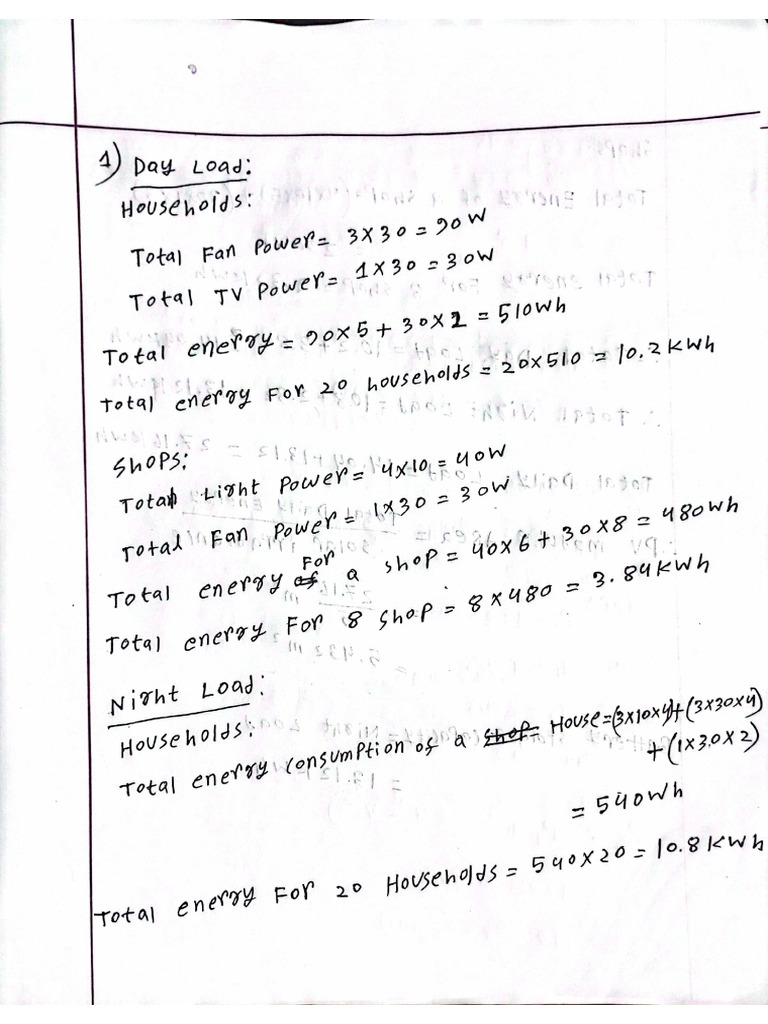 1) Day Load:
Households:
Total Fan Power = 3×30 = 90W
Total TV Power = 1×30 = 30W
Total energy = 90×5 + 30×2 = 510Wh
Total energy For 20 households = 20×510 = 10.2KWh
Shops:
Total Light Power = 4×10 = 40W
Total Fan Power = 1×30 = 30W
Total energy For a shop = 40×6 + 30×8 = 480Wh
Total energy For 8 shop = 8×480 = 3.84KWh
Night Load:
Households:
Total energy consumption of a shop House = (3×10×4)+(3×30×4)
+(1×30×2)
= 540Wh
Total energy For 20 Households = 540×20 = 10.8KWh